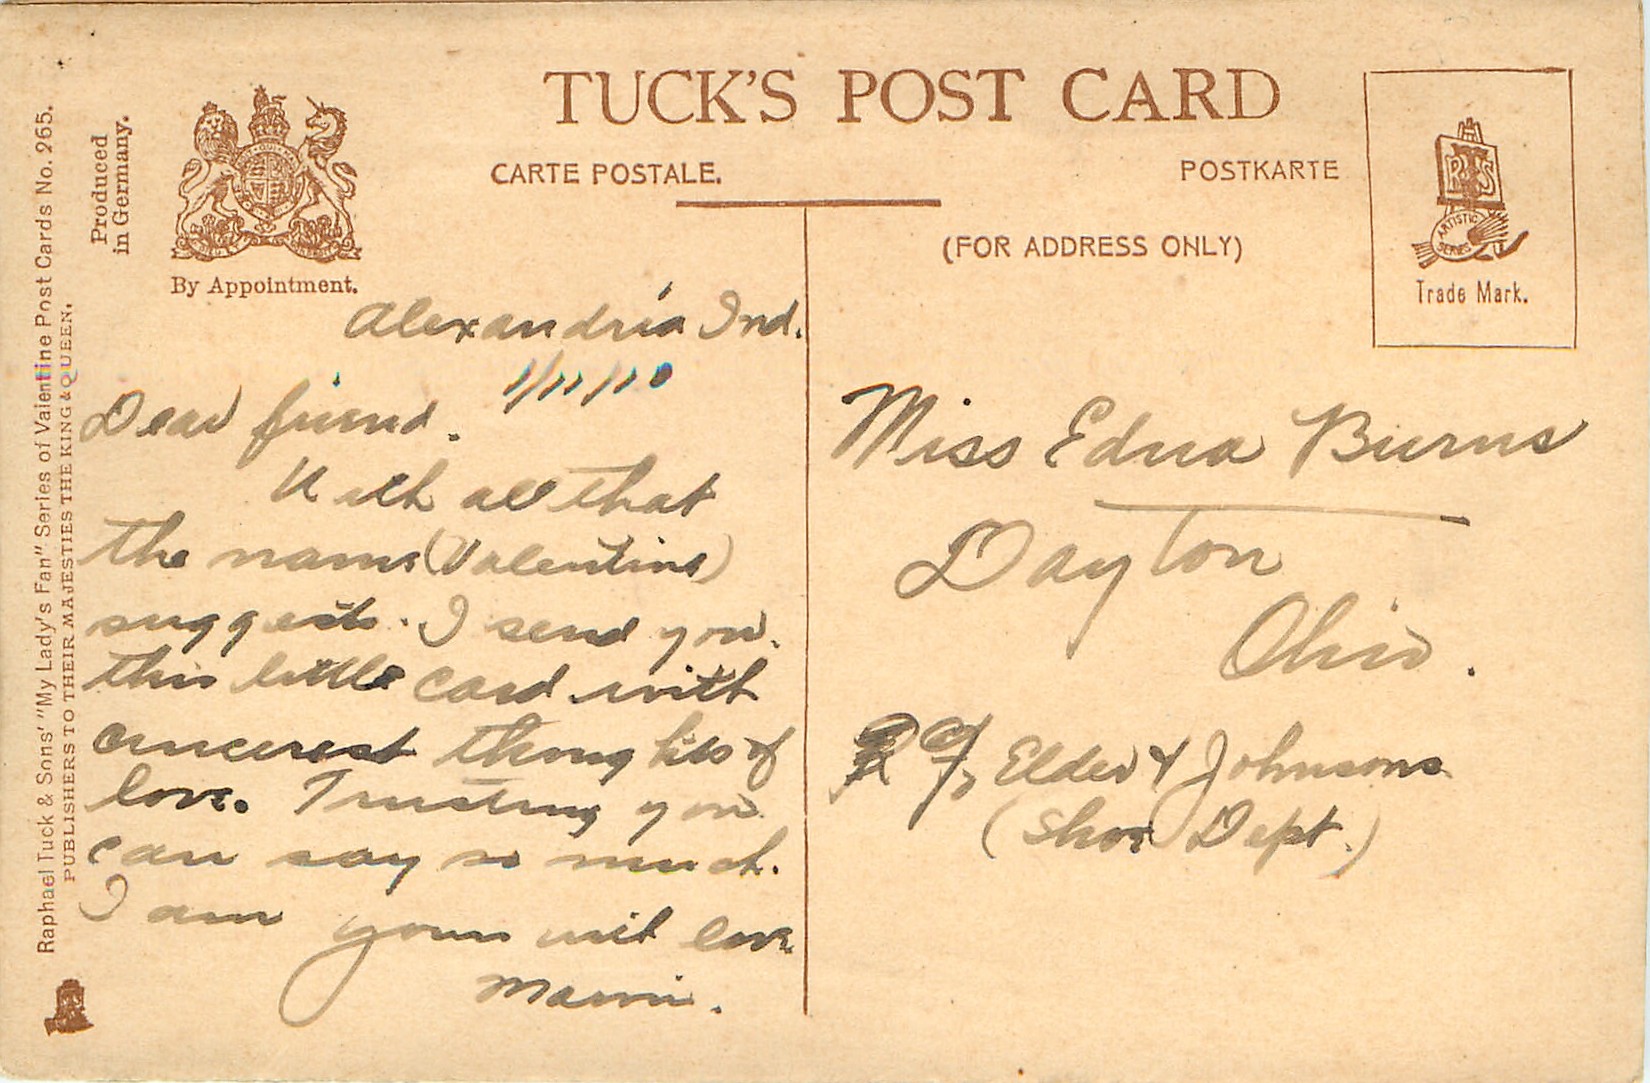 TUCK'S POST CARD
CARTE POSTALE.
POSTKARTE
(FOR ADDRESS ONLY)
Raphael Tuck & Sons' "My Lady's Fan" Series of Valentine Post Cards No. 265.
PUBLISHERS TO THEIR MAJESTIES THE KING & QUEEN.
Produced
in Germany.
By Appointment.
ARTISTIC
SERIES
Trade Mark.
Alexandria Ind.
1/11/10
Dear friend.
With all that
the name (Valentine)
suggests. I send you.
this little card with
sincerest thoughts of
love. Trusting you
can say so much.
I am yours wit love
Miss Edna Burns
Dayton
Ohio.
Elder & Johnsons
(Shoe Dept.)